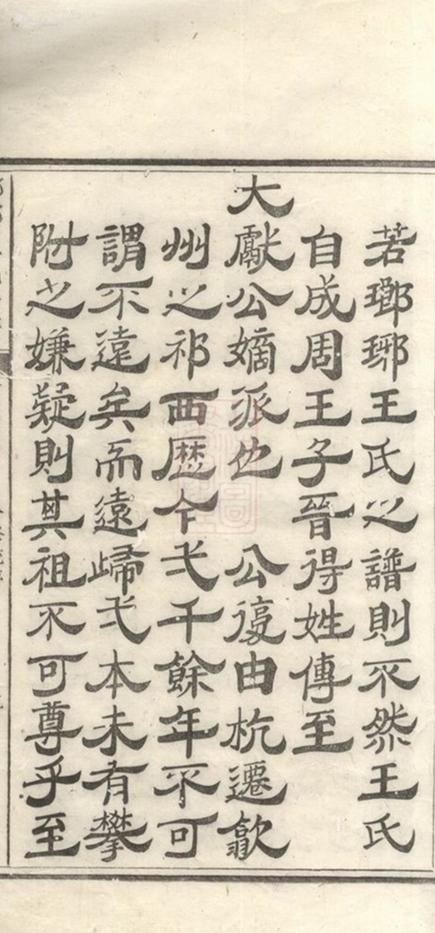 若瑯琊王氏之譜則不然王氏
自成周王子晉得姓傳至
大獻公嫡派也　公復由杭遷歙
州之祁西歷今弌千餘年不可
謂不遠矣而遠歸弌本未有攀
附之嫌疑則其祖不可尊乎至